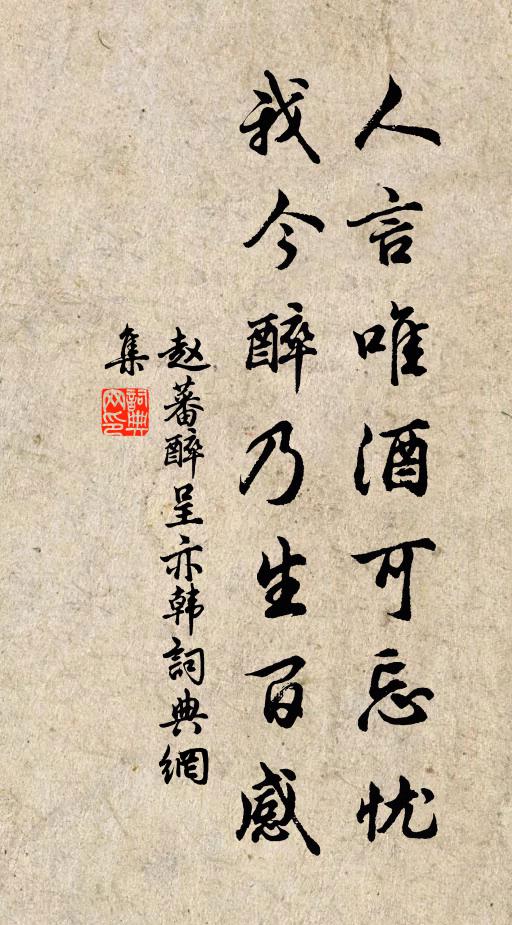 人言唯酒可忘忧
我今醉乃生百感
赵蕃醉呈亦韩詞典網
集
詞典
网印